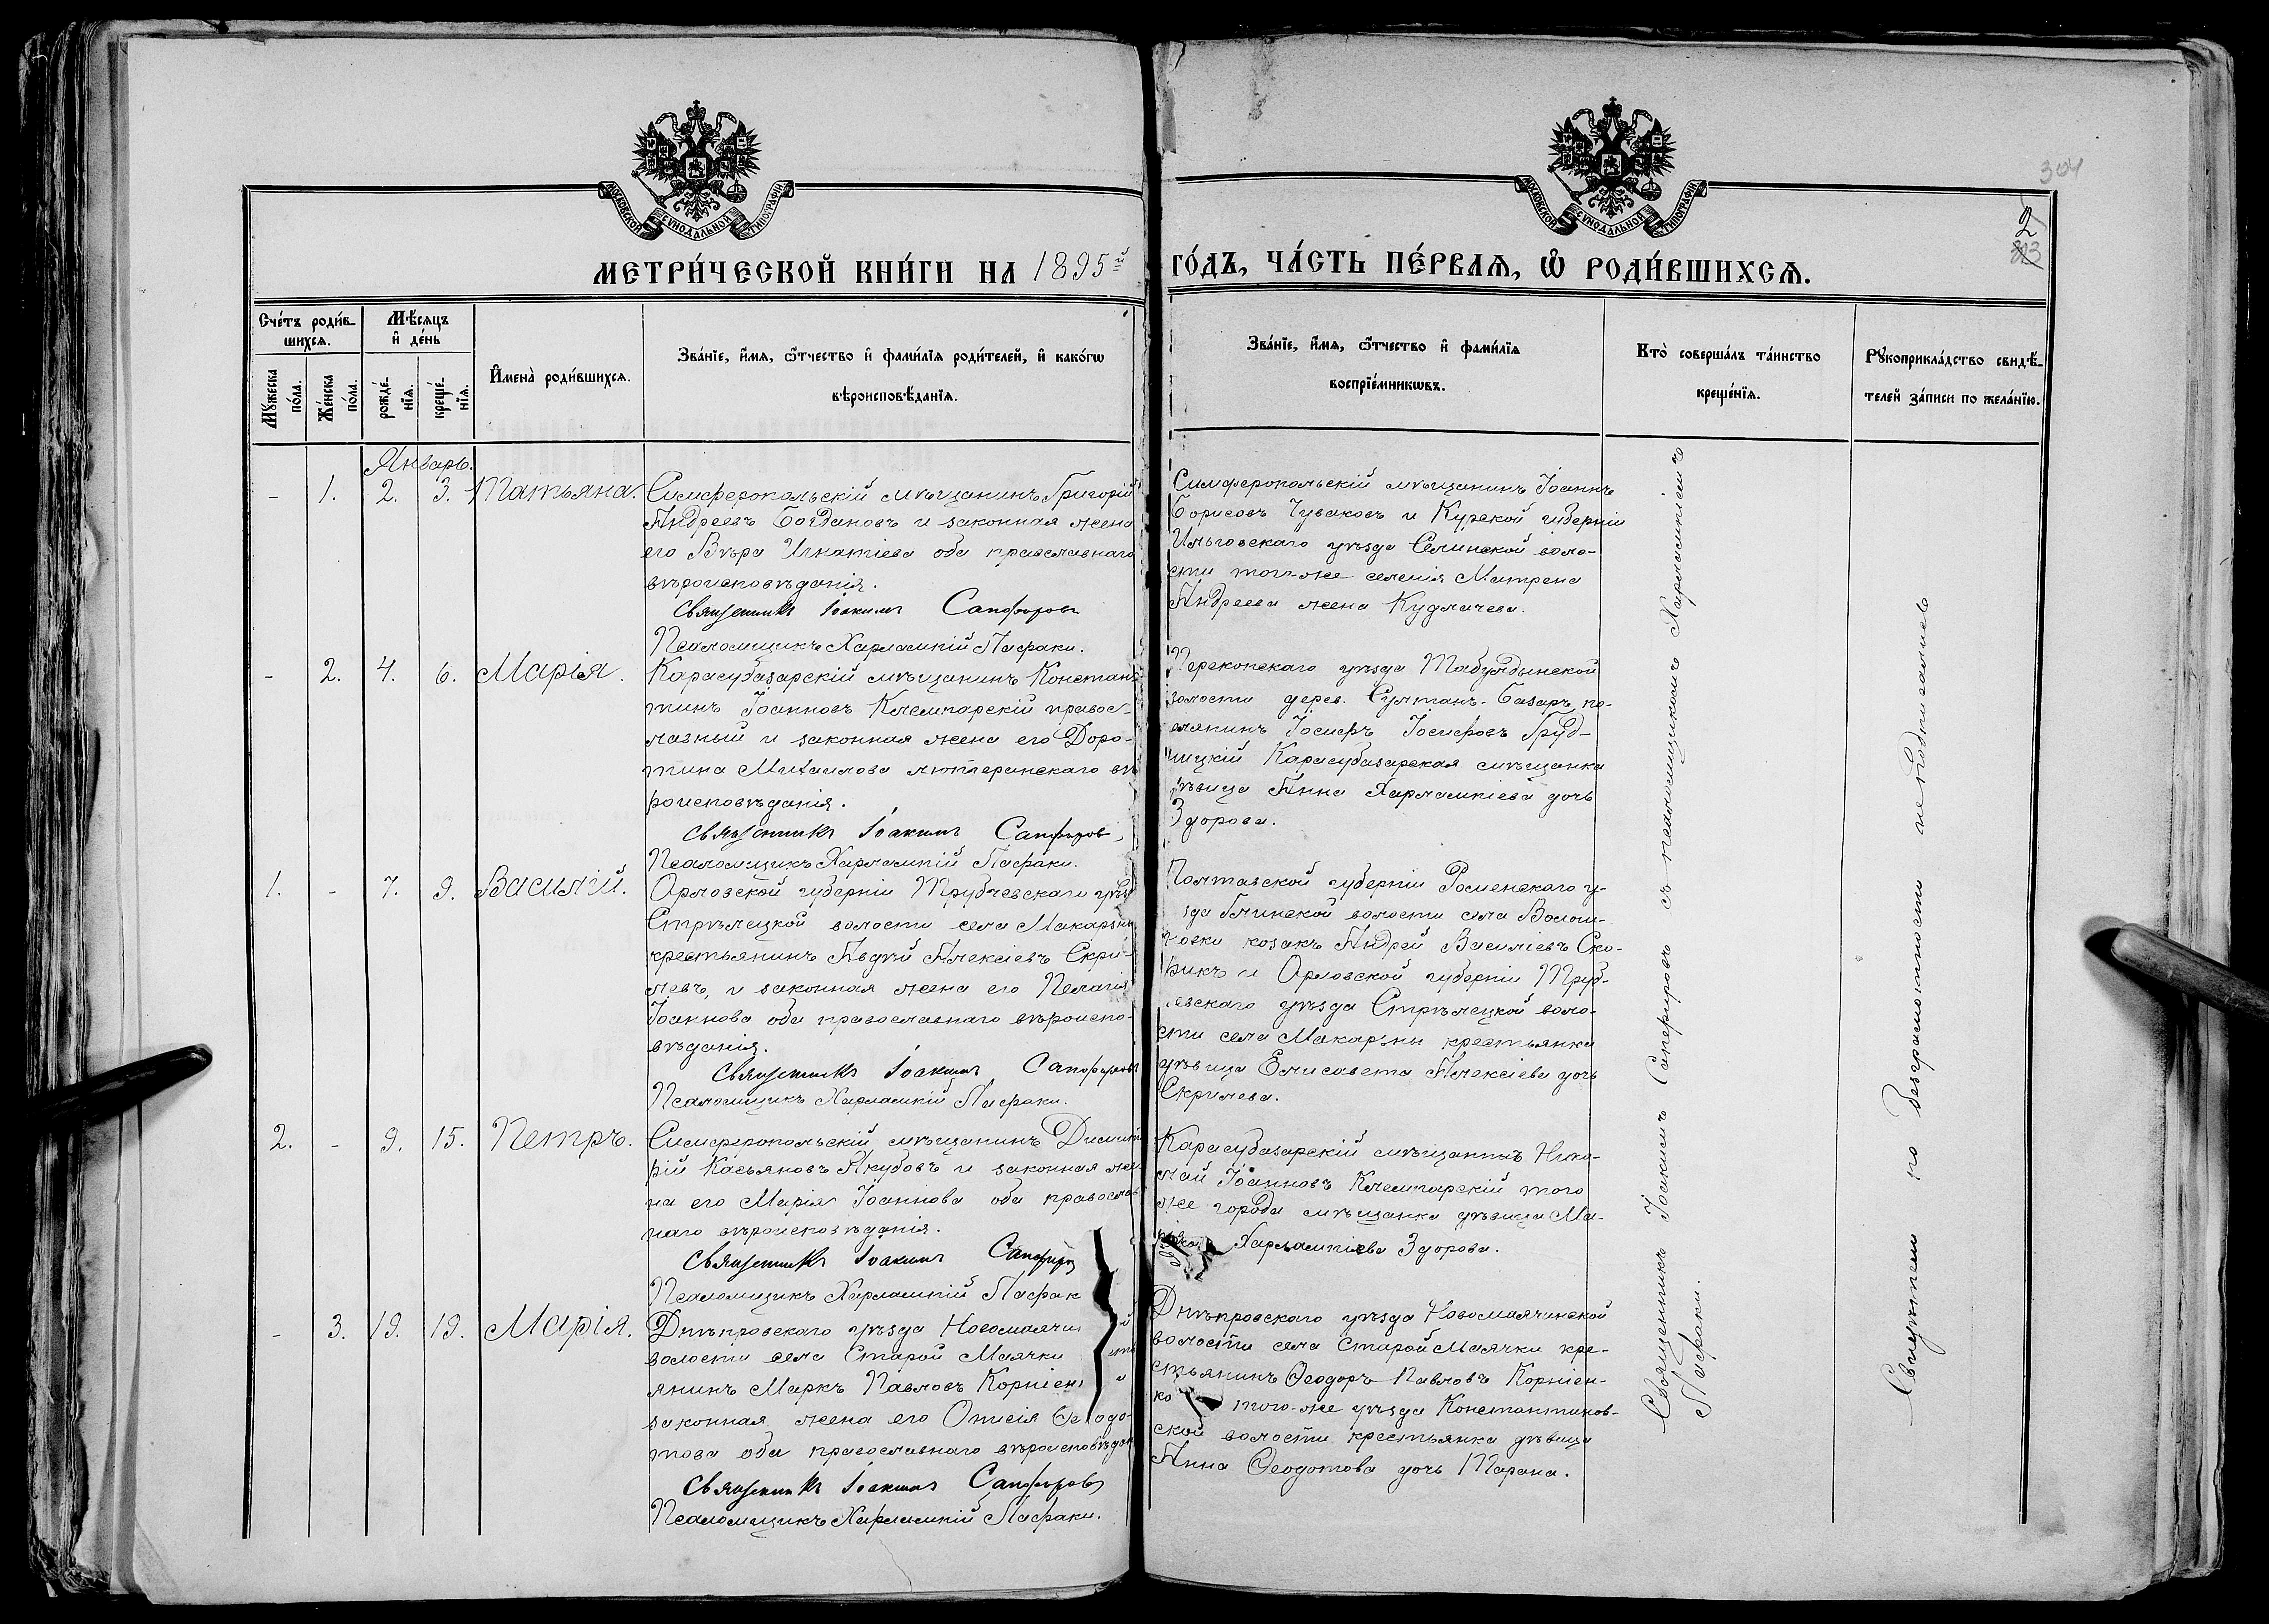 304
2
313
МОСКОВСКОЙ СѴНОДАЛЬНОЙ ТИПОГРАФІИ
МОСКОВСКОЙ СѴНОДАЛЬНОЙ ТИПОГРАФІИ
МЕТРИ́ЧЕСКОЙ КНИ́ГИ НА 1895й ГО́ДЪ, ЧА́СТЬ ПЕ́РВАѦ, Ѡ҆ РОДИ́ВШИХСѦ.
Сче́тъ роди́в-
шихсѧ.
Мꙋ́жеска по́ла.
Же́нска по́ла.
Мѣ́сѧцъ
и҆ де́нь
рожде́-
нїѧ.
креще́-
нїѧ.
И҆мена̀ роди́вшихсѧ.
Зва́нїе, и҆́мѧ, ѻ҆́тчество и҆ фами́лїѧ роди́телей, и҆ како́гѡ
вѣроисповѣ́данїѧ.
Зва́нїе, и҆́мѧ, ѻ҆́тчество и҆ фами́лїѧ
воспрїе́мникѡвъ.
Кто̀ соверша́лъ та́инство
креще́нїѧ.
Рꙋкоприкла́дство свидѣ́-
телей за́писи по жела́нїю.
Январь.
- 1. 2. 3. Татьяна.
Симферопольскій мѣщанинъ Григорій
Андреевъ Богдановъ и законная жена
его Вѣра Игнатіева оба православнаго
вѣроисповѣданія.
Священникъ Іоакимъ Сапфировъ
Псаломщикъ Харлампій Пафраки.
Симферопольскій мѣщанинъ Іоаннъ
Борисовъ Чуваковъ и Курской губерніи
уѣзда воло-
сти того-же селенія Матрена
Андреева жена
- 2. 4. 6. Марія.
Карасубазарскій мѣщанинъ Констан-
тинъ Іоанновъ Клемпарскій правос-
лавный и законная жена его Доро-
тина Михаилова лютеранскаго вѣ
роисповѣданія.
Священникъ Іоакимъ Сапфировъ
Псаломщикъ Харлампій Пафраки.
Перекопскаго уѣзда Табулдынской
волости дерев. Султанъ-Базаръ по-
селянинъ Іосифъ Іосифовъ Груд-
ницкій Карасубазарская мѣщанка
дѣвица Анна Харлампіева дочь
Здорова.
1. - 7. 9. Василій.
Орловской губерніи Трубчевскаго уѣз
Стрѣлецкой волости села Макарзны
крестьянинъ Авдій Алексіевъ Скри-
левъ, и законная жена его Пелагія
Іоаннова оба православнаго вѣроиспо-
вѣданія.
Священникъ Іоакимъ Сапфировъ
Псаломщикъ Харлампій Пафраки.
Полтавской губерніи Роменскаго у-
зда Глинской волости села Волош-
новки козакъ Андрей Василіевъ Ско-
рикъ и Орловской губерніи Труб-
чевскаго уѣзда Стрѣлецкой воло-
сти села Макарзны крестьянка
дѣвица Елисавета Алексіева дочь
Скрилева.
2. - 9. 15. Петръ.
Симферопольскій мѣщанинъ Димит
рій Касьяновъ Якубовъ и законная же-
на его Марія Іоаннова оба православ
наго вѣроисповѣданія.
Священникъ Іоакимъ Сапфиров
Псаломщикъ Харлампій Пафрак
Карасубазарскій мѣщанинъ Нико-
лай Іоанновъ Клемпарскій того
же города мѣщанка дѣвица Ма-
Харлампіева Здорова.
- 3. 19. 19. Марія.
Днѣпровскаго уѣзда Новомаячи й
волости села Старой Маячки
янинъ Маркъ Павловъ Корніен и
законная жена его Ѳеодо-
това оба православнаго вѣроисповѣдан
Священникъ Іоакимъ Сапфировъ
Псаломщикъ Харлампій Пафраки.
Днѣпровскаго уѣзда Новомаячинской
волости села Старой Маячки кре-
стьянинъ Ѳеодоръ Павловъ Корніен-
ко того-же уѣзда Константинов-
ской волости крестьянка дѣвица
Анна Ѳеодотова дочь Тарана.
Священникъ Іоакимъ Сапфировъ съ псаломщикомъ Харлампіемъ
Пафраки.
Свидѣтели по безграмотности неподписались